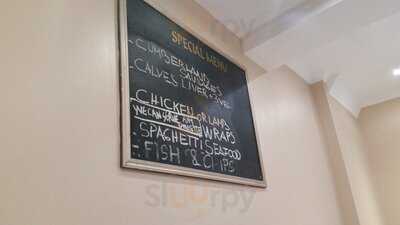 SPECIAL MENU
- CUMBERLAND
SAUSAGES
- CALVES LIVER
CHICKEN OR LAMB
WRAPS
- SPAGHETTI SEAFOOD
- FISH & CHIPS
sluurpy